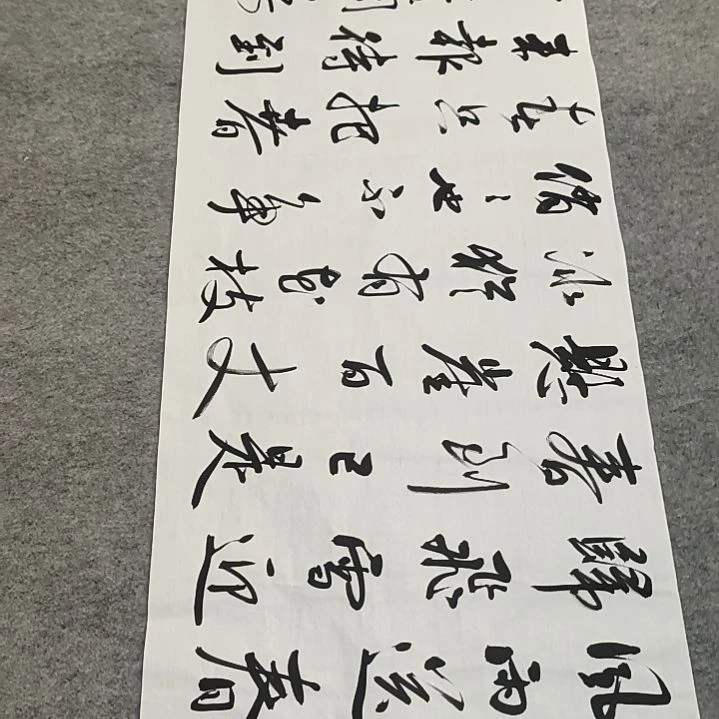 風雨送春
歸飛雪迎
春到已是
懸崖百丈
冰猶有花枝
俏〻也不爭
春只把春
来報待到